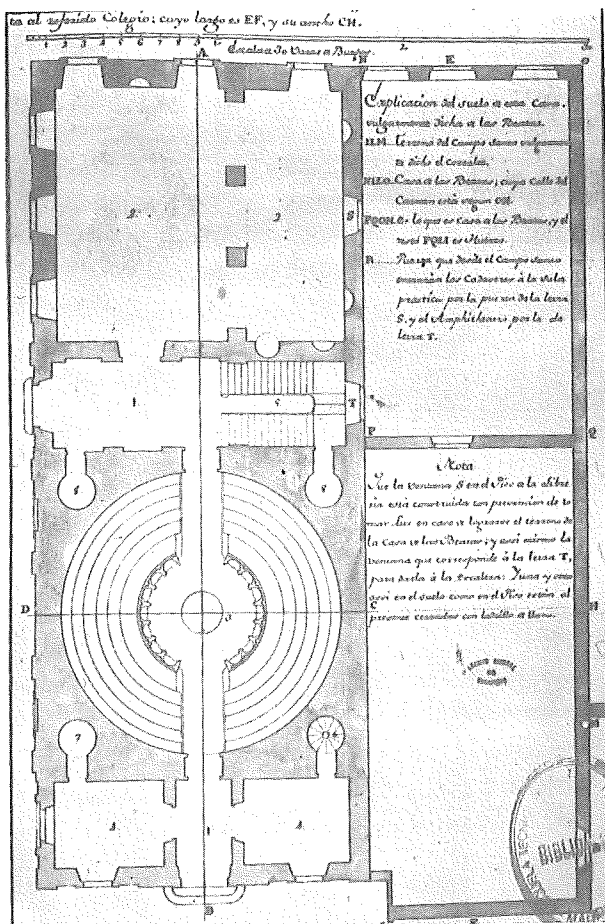 ta al referido Colegio; cuyo largo es EF, y su ancho CH.
1 2 3 4 5 6 7 8 9
Escala de Varas de Burgos.
A
E
Explicacion del suelo de esta Casa,
vulgarmente dicha de las Beatas.
del Campo santo vulgarmente
dicho el corralet.
Casa de las Beatas; cuya Calle del
Carmen está segun OH.
es lo que es Casa de las Beatas, y el
resto es
R
que desde el Campo santo
los Cadaveres à la Sala
practica por la puerta de la letra
S. y el Amphiteatro por la de
letra T.
2
2
S
1
5
T
P
Q
Nota
Que la ventana S en el Piso de la
está construida con prevencion de to
mar luz en caso de lograrse el terreno de
la Casa de las Beatas; y assi mismo la
ventana que corresponde à la letra T,
para darla à la Escalera: y una y otra
assi en el suelo como en el Piso están al
presente cerradas con ladrillo
8
8
D
3
C
H
7
6
4
1
4
B
BIBLIO